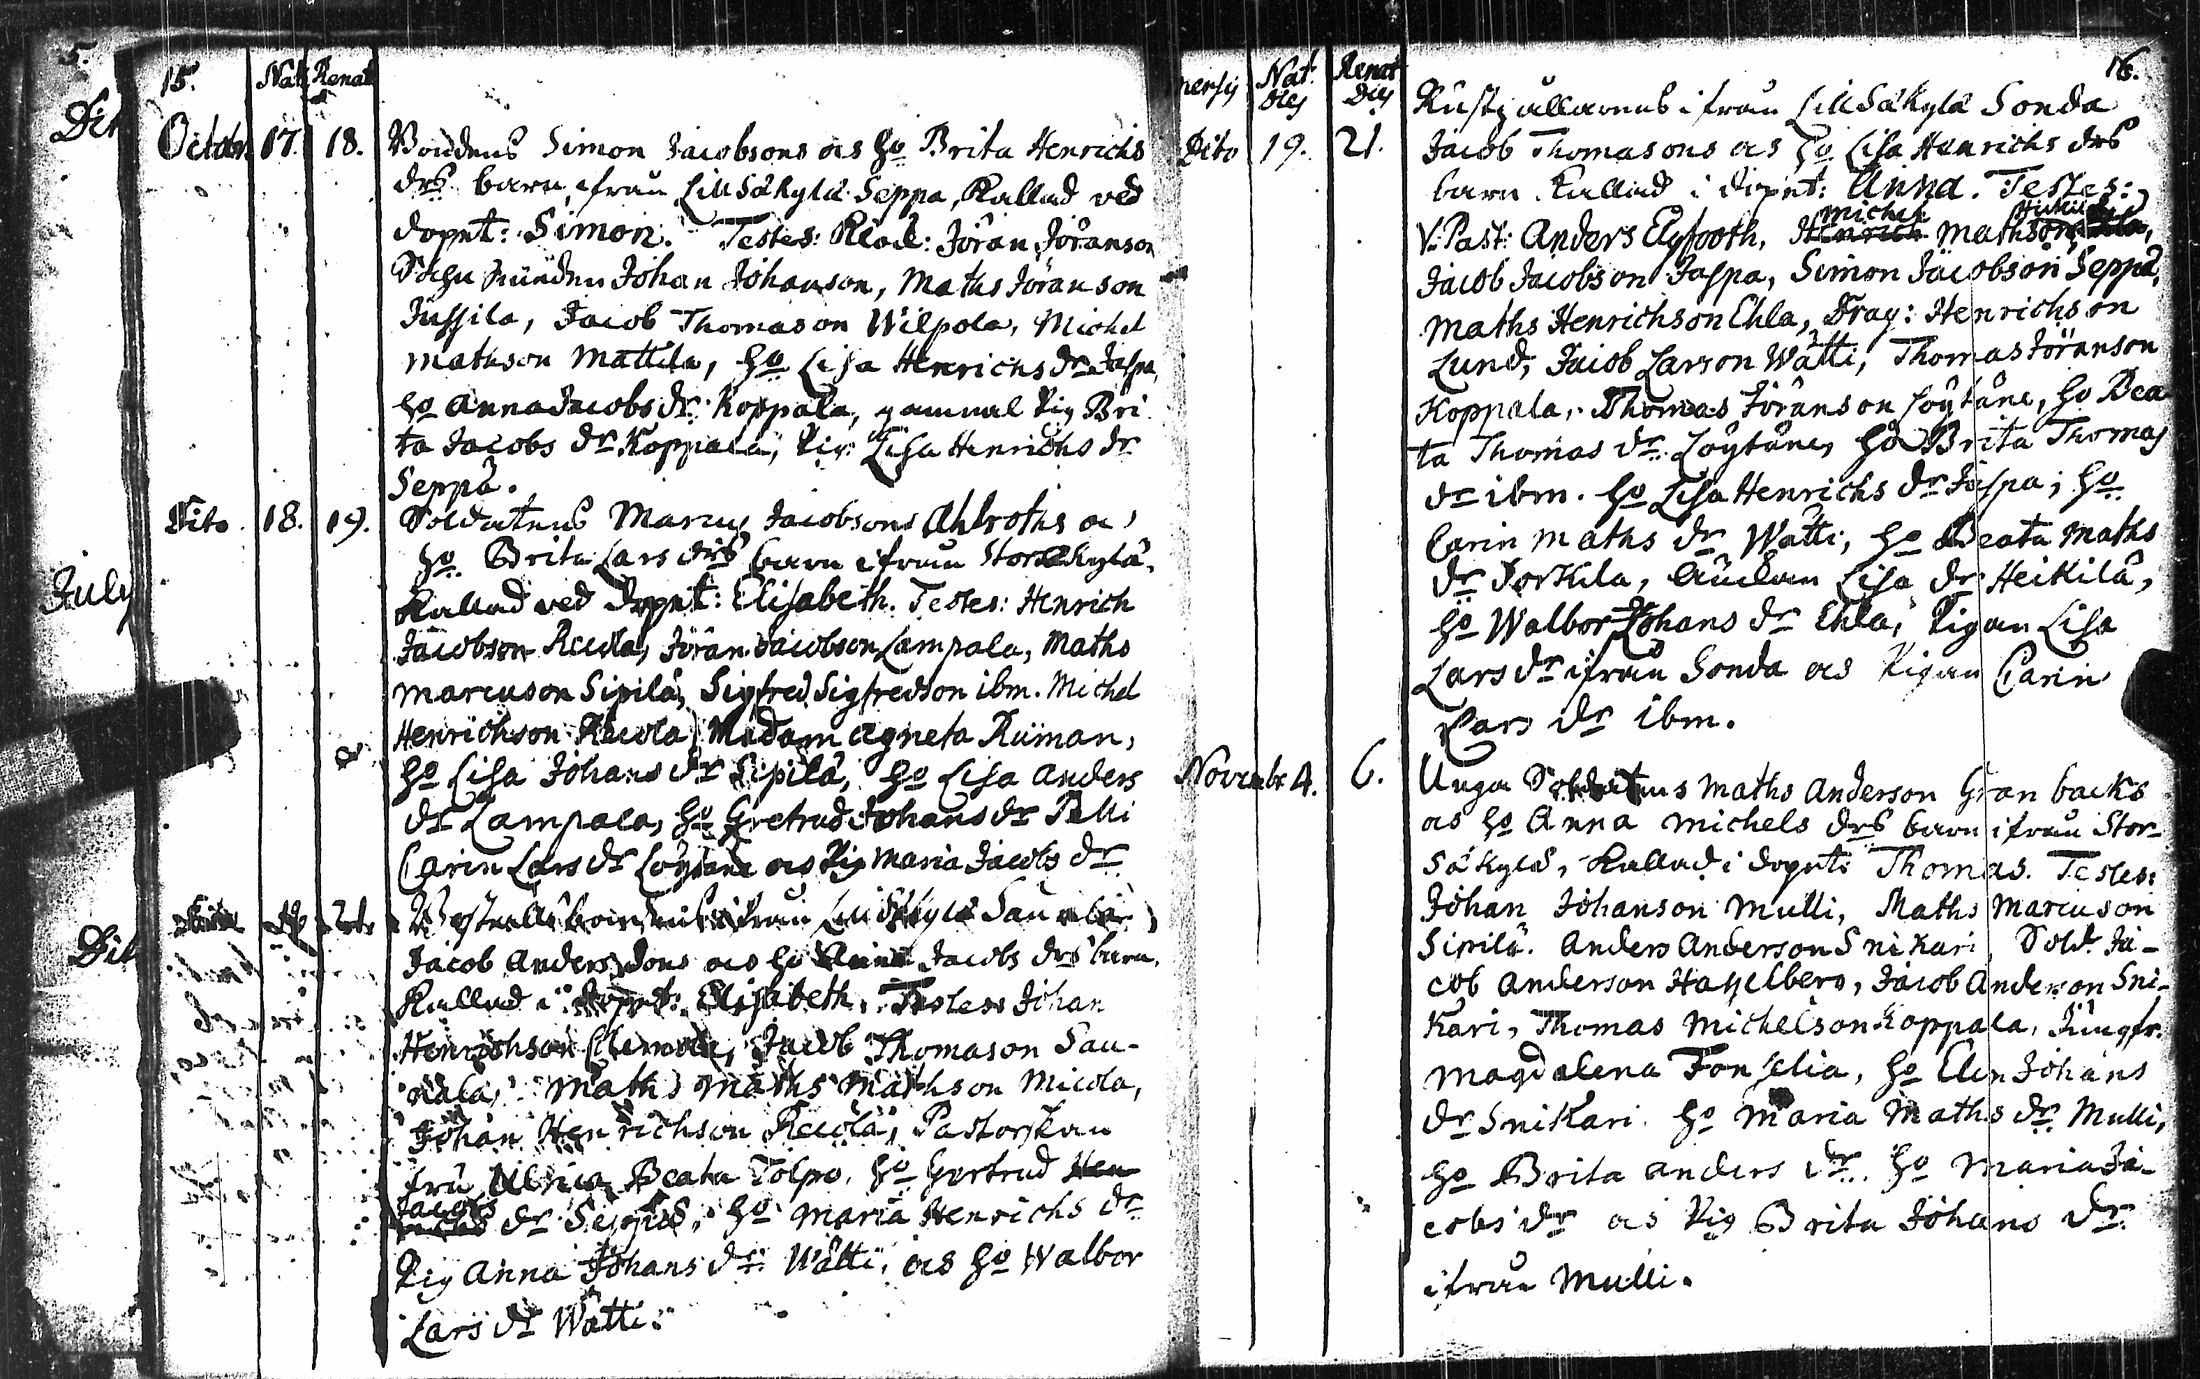 5.
15.
Nat. Renat
Octobr 17. 18. Bondens Simon Jacobsons och ho Brita Henrichs
drs barn, ifrån Lill Säkylä Seppä, Kallad ved
dopnt: Simon. Testes: Klåck: Jöran Jöranson
Johan Johanson, Maths Jöranson
Jussila, Jacob Thomason Wilpola, Michel
Mathson Mattila, ho Lisa Henrichs dr Jaspa,
ho Anna Jacobs dr Koppala, gammal Pig Bri
ta Jacobs dr Koppala, Pig: Lisa Henrichs dr
Seppä.
Dito 18. 19. Soldatens Marcus Jacobsons Ahlroths och
ho Brita Lars drs barn ifrån Stor Säkylä,
Kallad ved dopnt: Elisabeth. Testes: Henrich
Jacobson Recola, Jöran Jacobson Lampala, Maths
Marcuson Sipilä, Sigfred Sigfredson ibm. Michel
Henrichson Recola, Madam Agneta Küman,
ho Lisa Johans dr Sipilä, ho Lisa Anders
dr Lampala, ho Gretrud Johans dr Pelli
Carin Lars dr Löytäne och Pig Maria Jacobs dr
ifrån Lill Säkylä
Jacob Anderssons och ho Anna Jacobs drs barn,
Kallad i dopnt: Elisabeth. Testes: Johan
Henrichson, Jacob Thomason Sau-
nala, Maths Maths Mathson Micola,
Johan Henrichson Recola, Pastorskan
fru Ulrica Beata Tolpo, ho Gertrud Hen
Jacobs
richs dr Seppä, ho Maria Henrichs dr
Pig Anna Johans dr Wätti, och ho Walbor
Lars dr Wätti.
Dit
July
Dit
16.
Mensis Nat: Dies Renat Dies
Rusthållarens ifrån Lill Säkylä Sonda
Dito 19. 21. Jacob Thomasons och ho Lisa Henrichs drs
barn Kallad i dopnt: Anna. Testes:
Michel
V. Past: Anders Elgfooth, Henrich Mathson
Jacob Jacobson Jaspa, Simon Jacobson Seppä,
Maths Henrichson Ehla, Drag: Henrichson
Lund, Jacob Larson Wätti, Thomas Jöranson
Koppala, Thomas Jöranson Löytäne, ho Bea
ta Thomas dr Löytäne, ho Brita Thomas
dr ibm. ho Lisa Henrichs dr Jaspa, ho
Carin Maths dr Wätti, ho Beata Maths
dr Torkila, Änckan Lisa dr Heikilä,
ho Walbor Johans dr Ehla, Pigan Lisa
Lars dr ifrån Sonda och Pigan Carin
Lars dr ibm.
Novembr 4. 6. Unga Soldatens Maths Anderson Granbacks
och ho Anna Michels drs barn ifrån Stor-
Säkylä, Kallad i dopnt: Thomas. Testes:
Johan Johanson Mulli, Maths Marcuson
Sipilä. Anders Anderson Snikari, Sold. Ja-
cob Anderson Hasselberg, Jacob Anderson Sni-
kari, Thomas Michelson Koppala, Jungfr.
Magdalena Fonselia, ho Elin Johans
dr Snikari. ho Maria Maths dr Mulli,
ho Brita Anders dr. ho Maria Ja-
cobs dr och Pig Brita Johans dr
ifrån Mulli.